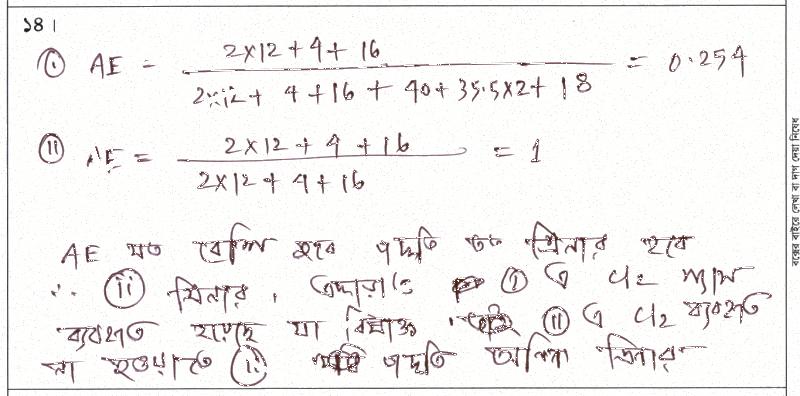 ১৪।
(i) AE = (2×12+4+16) / (2×12+ 4+16 + 40+35.5×2+ 18) = 0.254
(ii) AE = (2×12 + 4 +16) / (2×12+4+16) = 1
AE যত বেশি হবে পদ্ধতি তত গ্রিনার হবে
∴ (ii) গ্রিনার। এছাড়াও (i) এ Cl₂ গ্যাস
ব্যবহৃত হয়েছে যা বিষাক্ত। (ii) এ Cl₂ ব্যবহৃত
না হওয়াতে (ii) পদ্ধতি অধিক গ্রিনার
বক্সের বাইরে লেখা বা দাগ দেয়া নিষেধ